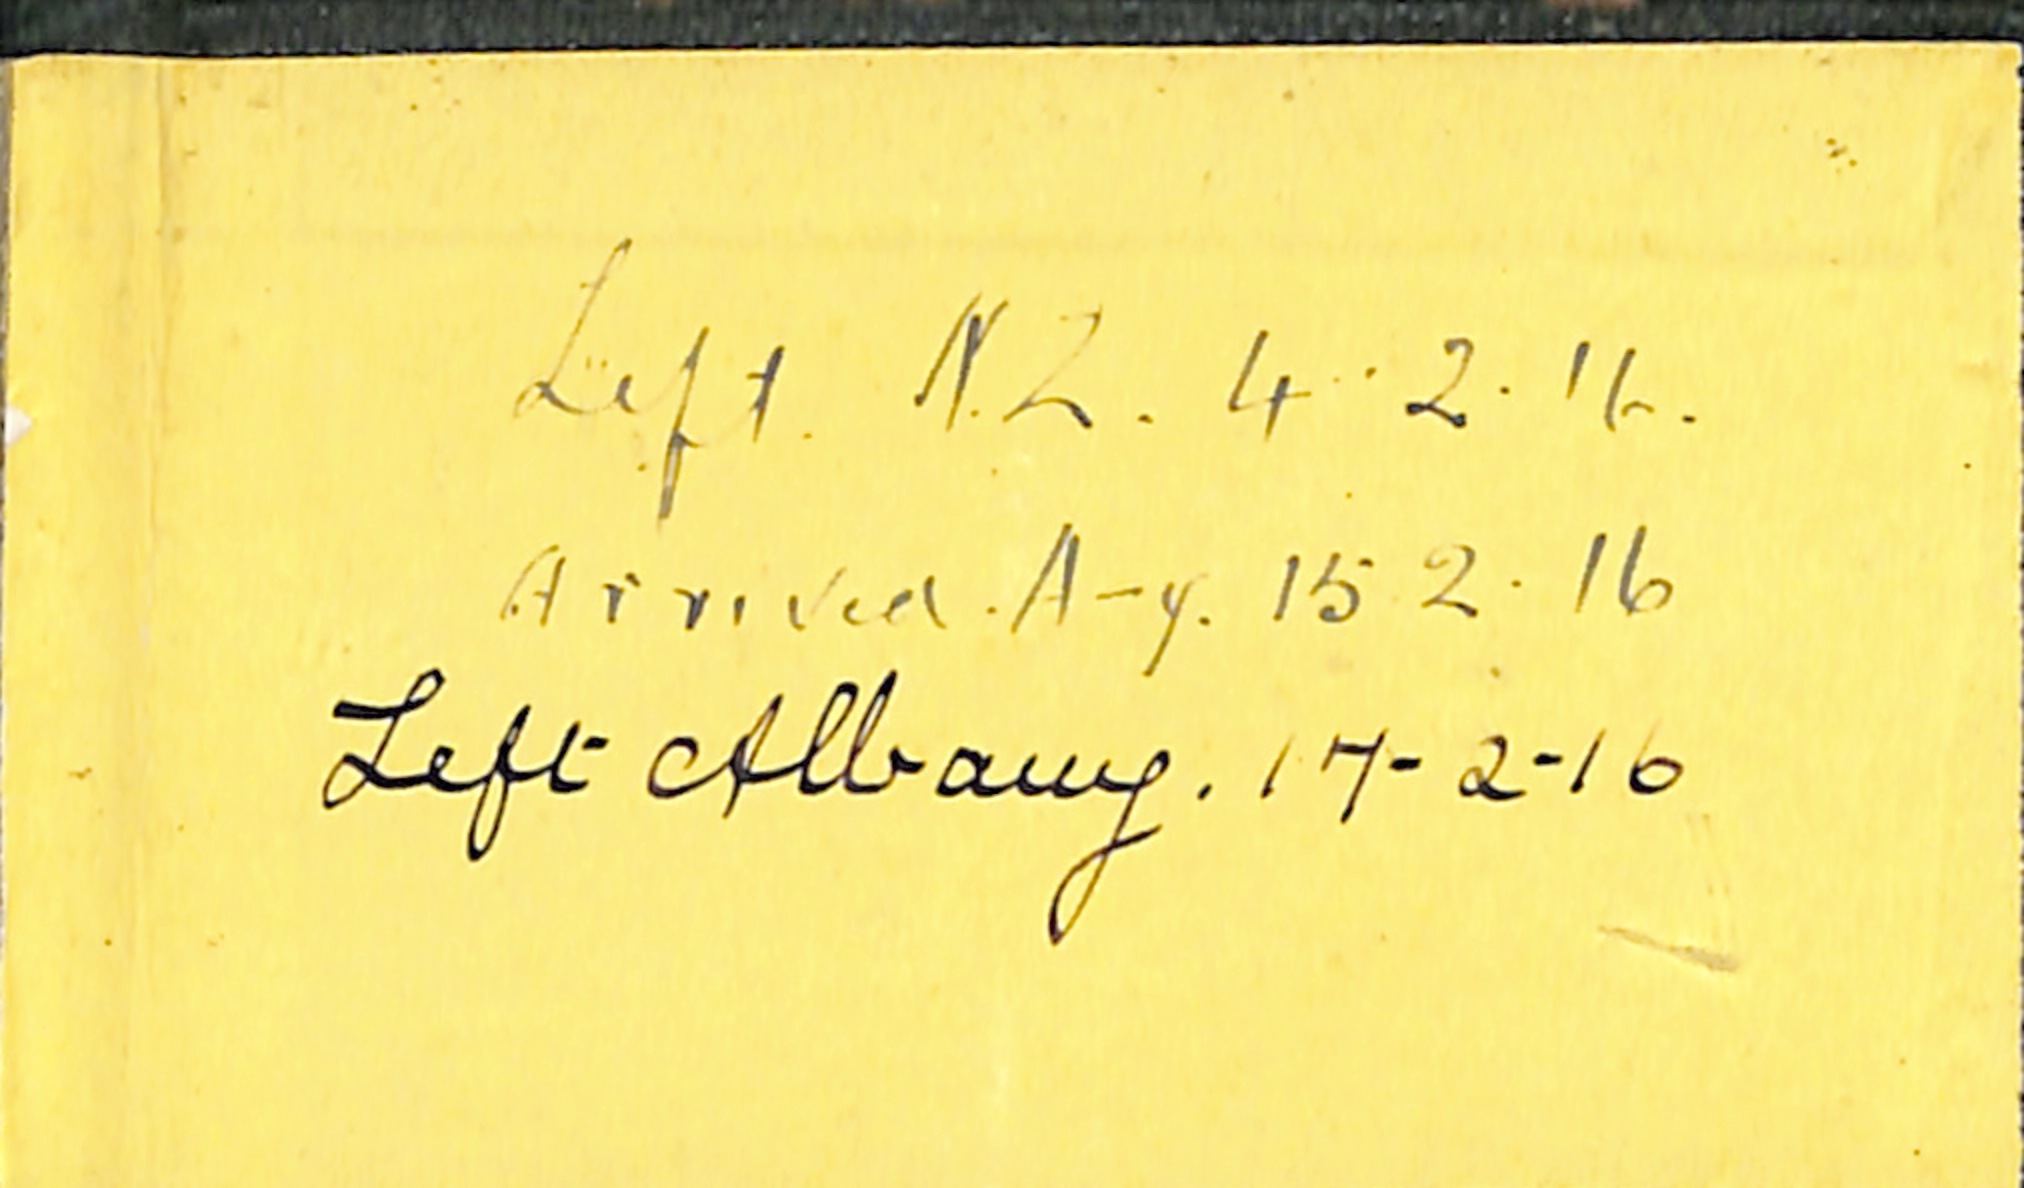 Left. N.Z. 4.2.16.
Arrived. A-y. 15.2.16
Left Albany. 17-2-16